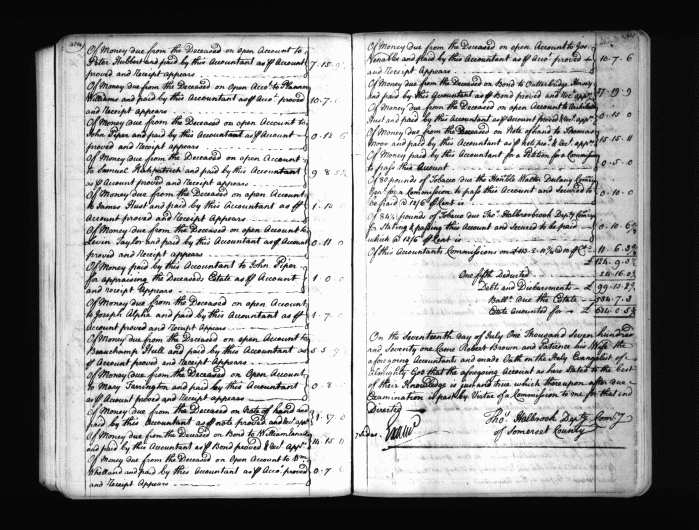 Of Money due from the Deceased on open Account to
Peter Hubbert and paid by this Accountant as ⅌ Account 7..15..
proved and Receipt appears
Of Money due from the Deceased on open Acco.t to
Williams and paid by this Accountant as ⅌ Acco.t proved 10..7..
and Receipt appears
Of Money due from the Deceased on open Account to
John Piper and paid by this Accountant as ⅌ Account 0..12..6
proved and Receipt appears
Of Money due from the Deceased on open Account
to Samuel Kirkpatrick and paid by this Accountant 9..8
as ⅌ Account proved and Receipt appears
Of Money due from the Deceased on open Account
to James Hust and paid by this Accountant as ⅌ 1..10
Account proved and Receipt Appears
Of Money due from the Deceased on open Account to
Levin Taylor and paid by this Accountant as ⅌ Account 0..11..0
proved and Receipt appears
Of Money paid by this Accountant to John Piper
for appraising the Deceaseds Estate as ⅌ Account 1..0..0
and receipt Appears
Of Money due from the Deceased on open Account
to Joseph Alpha and paid by this Accountant as ⅌ 1..7..0
Account proved and Receipt Appears
Of Money due from the Deceased on open Account to
Beauchamp Hull and paid by this Accountant as 5..5
⅌ Account proved and Receipt Appears
Of Money due from the Deceased on Open Account
to Mary Farrington and paid by this Accountant 0..8
as ⅌ Account proved and Receipt appears
Of Money due from the Deceased on note of hand and
paid by this Accountant as ⅌ note proved and rec.t app.rs
Of Money due from the Deceased on Bond to William
and paid by this Accountant as ⅌ Bond proved & rec.t app.rs 14..15..11
Of Money due from the Deceased on Open Account to W.m
Whelland and paid by this Accountant as ⅌ Acco.t proved 0..7..6
and Receipt Appears
Of Money due from the Deceased on open Account to Geo.
Venables and paid by this Accountant as ⅌ Acco.t proved 10..7..6
and Receipt Appears
Of Money due from the Deceased on Bond to Outterbridge Horsey
and paid by this Accountant as ⅌ Bond proved and rec.t app.rs
Of Money due from the Deceased on open Account to
Hust and paid by this Accountant as ⅌ Account proved & rec.t app.rs
Of Money due from the Deceased on Note of hand to Thomas
Moor and paid by this Accountant as ⅌ note prov.d & rec.t app.rs 15..15..11
Of Money paid by this Accountant for a Petition for a Commission
to pass this Account 0..5..0
Of 80 pounds of Tobacco due the Hon.ble Walter Dulany Comissary
Gen.l for a Commission to pass this Account and Secured to 0..10..0
be paid @ 12/6 ⅌ Cent is
Of 84½ pounds of Tobacco due Tho.s Holbrook Dep.ty Comry
for Stating & passing this Account and Secured to be paid 0..10..6¾
which @ 12/6 ⅌ Cent is
Of this Accountants Commissions on £113..2..11
£124..9..5
One fifth Deducted 24..16..0
Debts and Disbursements £ 99..13..2
Ball.ce due the Estate 534..7..3
Estate accounted for £ 634..0..5
On the Seventeenth day of July One Thousand Seven hundred
and Seventy one Came Robert Brown and Patience his Wife the
aforegoing Accountants and made Oath on the Holy Evangelist of
Almighty God that the aforegoing Account as here stated to the best
of their Knowledge is just and true which thereupon after due
Examination is past by Virtue of a Commission to me for that end
Directed
Tho.s Holbrook Dep.ty Com.ry
of Somerset County
Exam.d